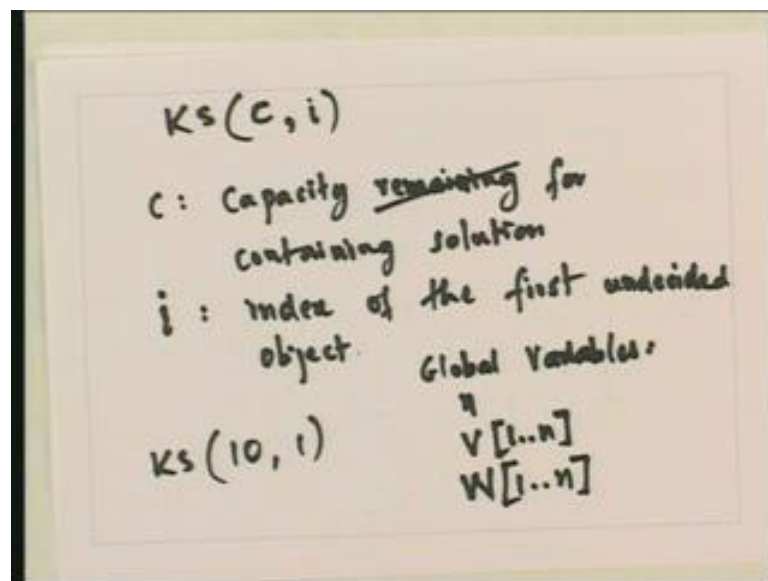 KS(C, i)
C: Capacity remaining for
containing solution
i : index of the first undecided
object.
Global Variables.
n
V[1..n]
W[1..n]
KS(10, 1)